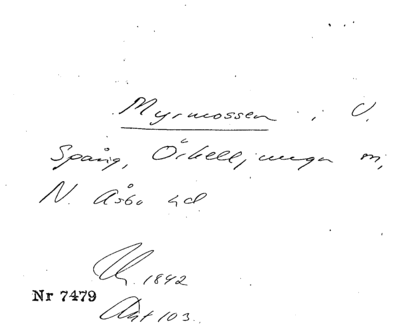 Myrmossen i V.
Spång, Örkelljunga sn,
N. Åsbo hd
1842
Nr 7479
Akt 103.